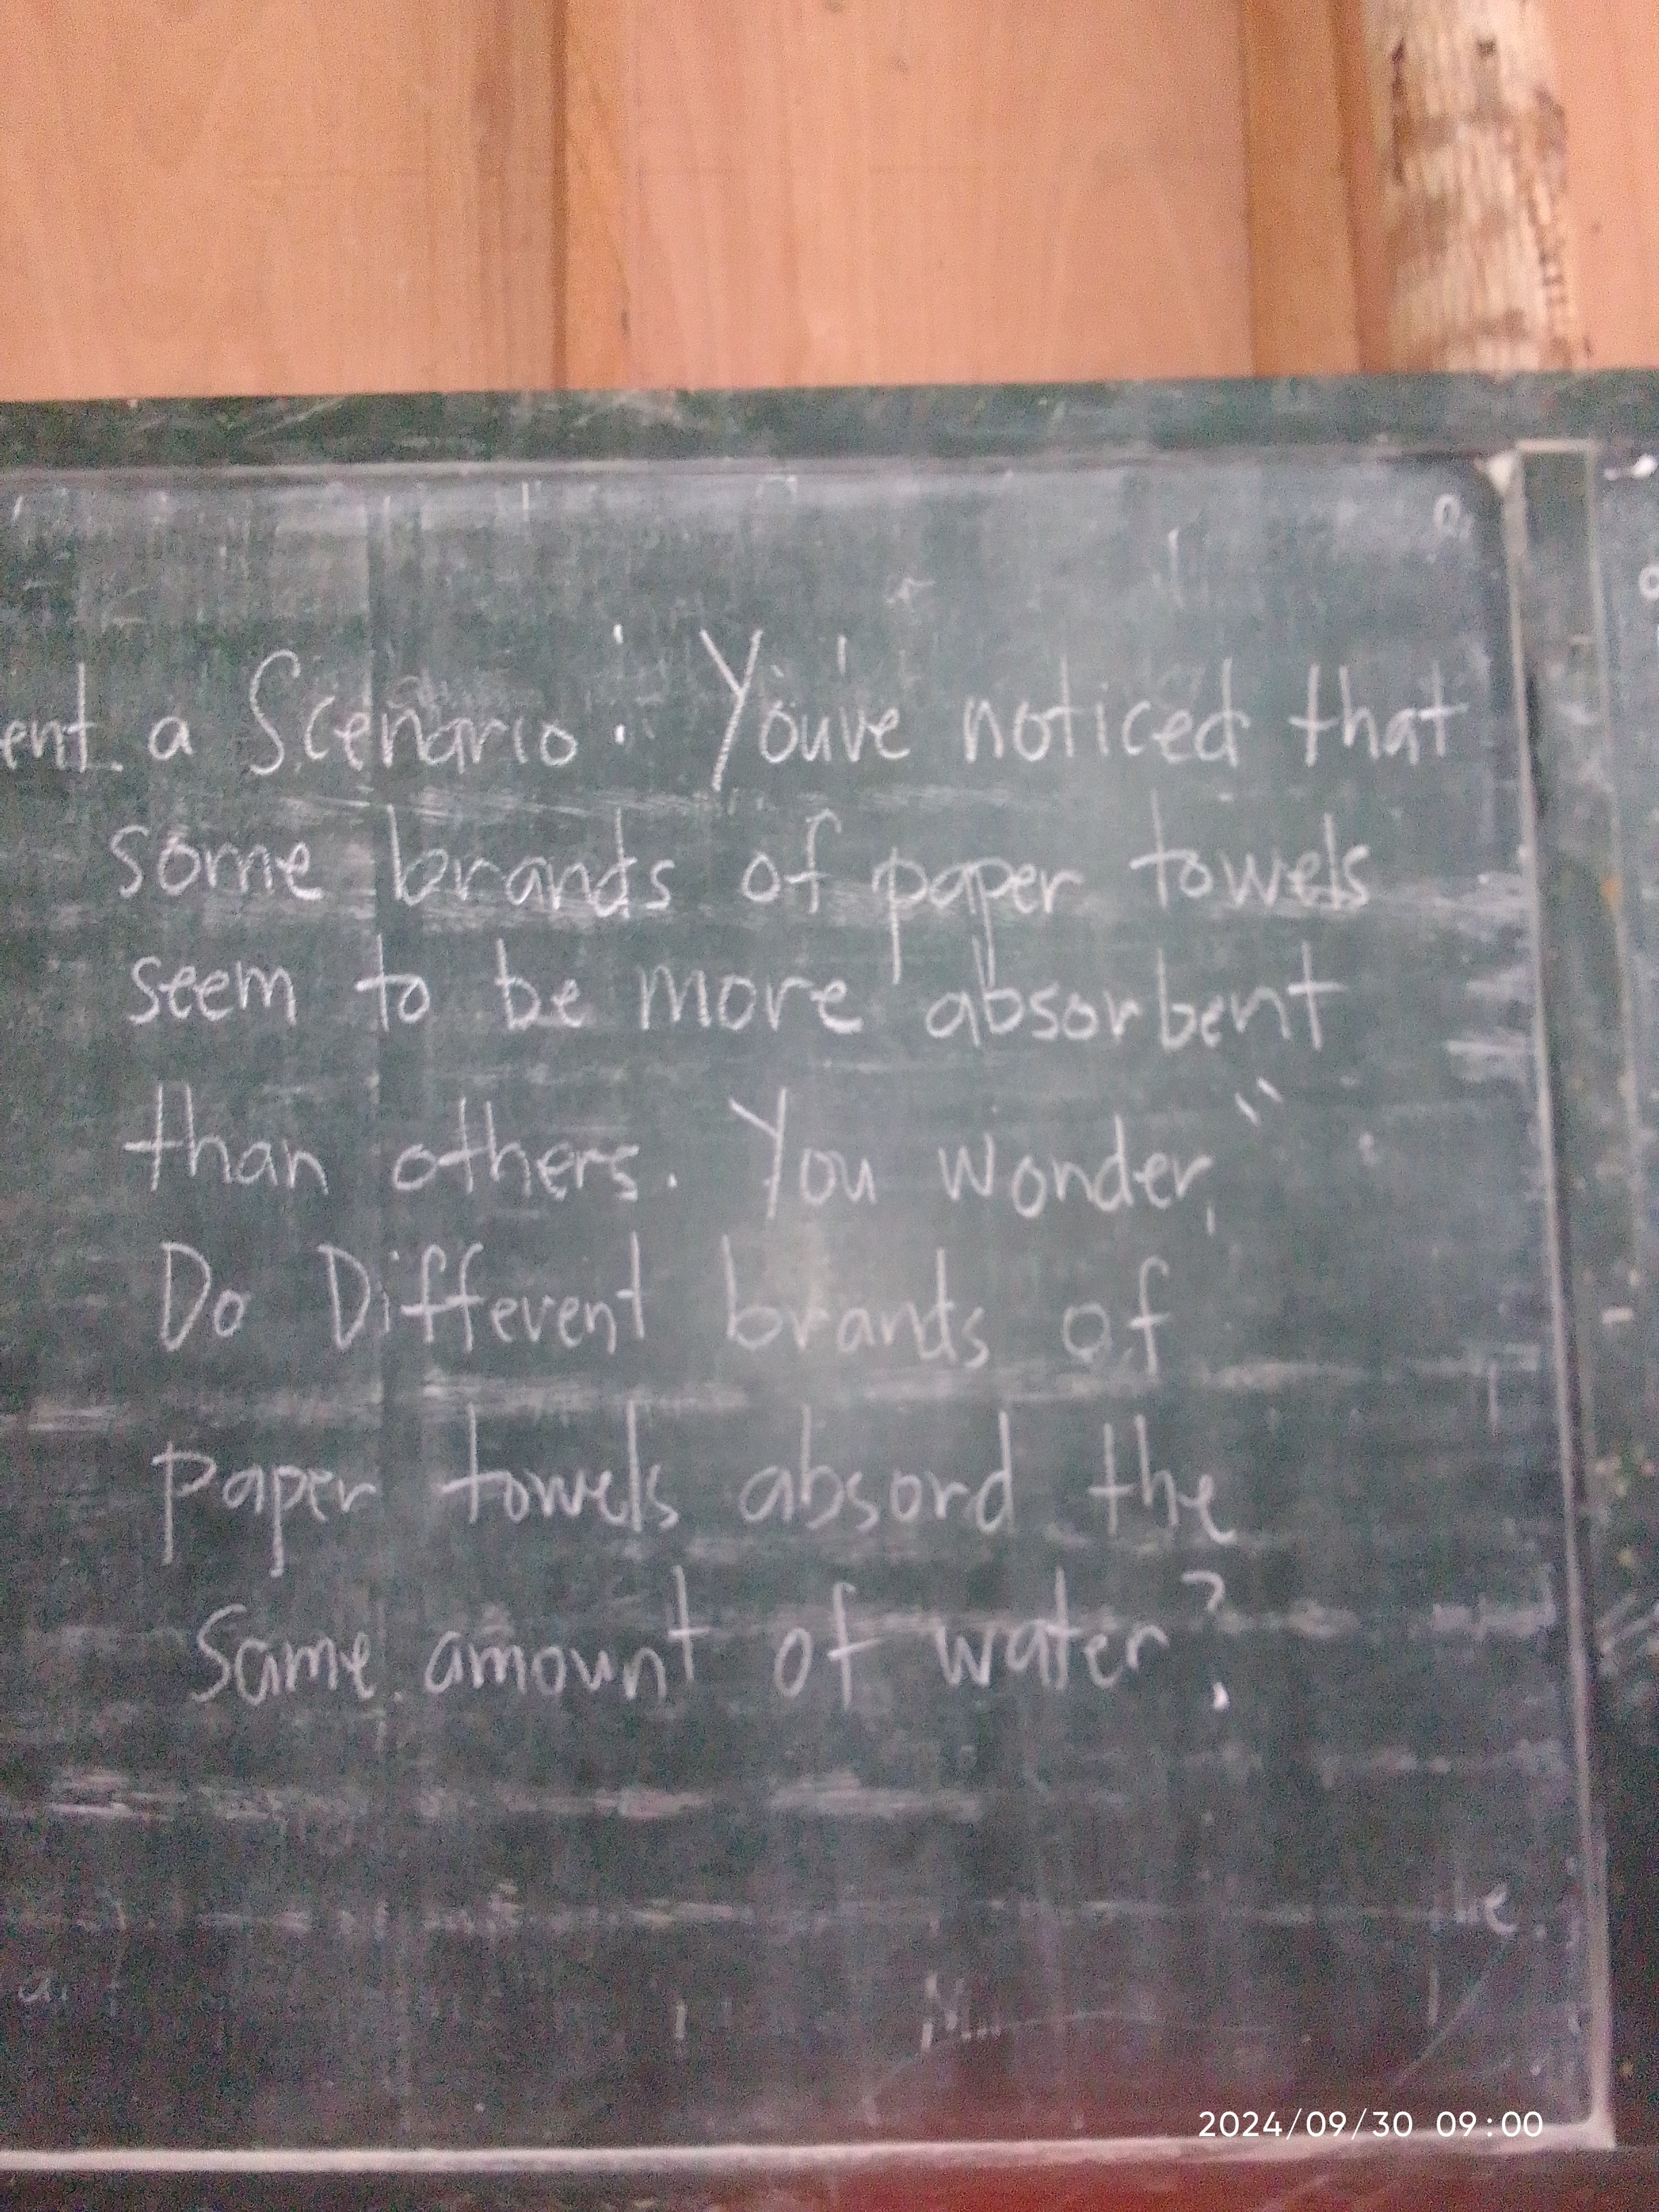 ent a Scenario: You've noticed that
some brands of paper towels
seem to be more absorbent
than others. You wonder, "
Do Different brands of
paper towels absord the
Same amount of water?
2024/09/30 09:00